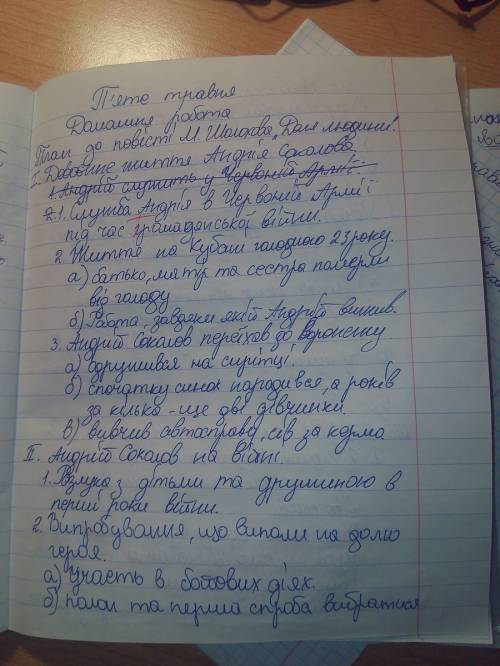 П'яте травня
Домашня робота
План до повісті М. Шолохова „Доля людини".
I. Довоєнне життя Андрія Соколова.
1. Андрій служить у Червоній Армії.
2.1. Служба Андрія в Червоній Армії
під час громадянської війни.
2. Життя на Кубані голодного 23 року.
а) батько, матір та сестра померли
від голоду
б) Робота, завдяки якій Андрій вижив.
3. Андрій Соколов переїхав до Воронежу
а) одружився на сирітці.
б) спочатку синок народився, а років
за кілька - ще дві дівчинки.
в) вивчив автосправу, сів за кермо
II. Андрій Соколов на війні.
1. Розлука з дітьми та дружиною в
перші роки війни.
2. Випробування, що випали на долю
героя.
а) Участь в бойових діях.
б) полон та перша спроба вибратися